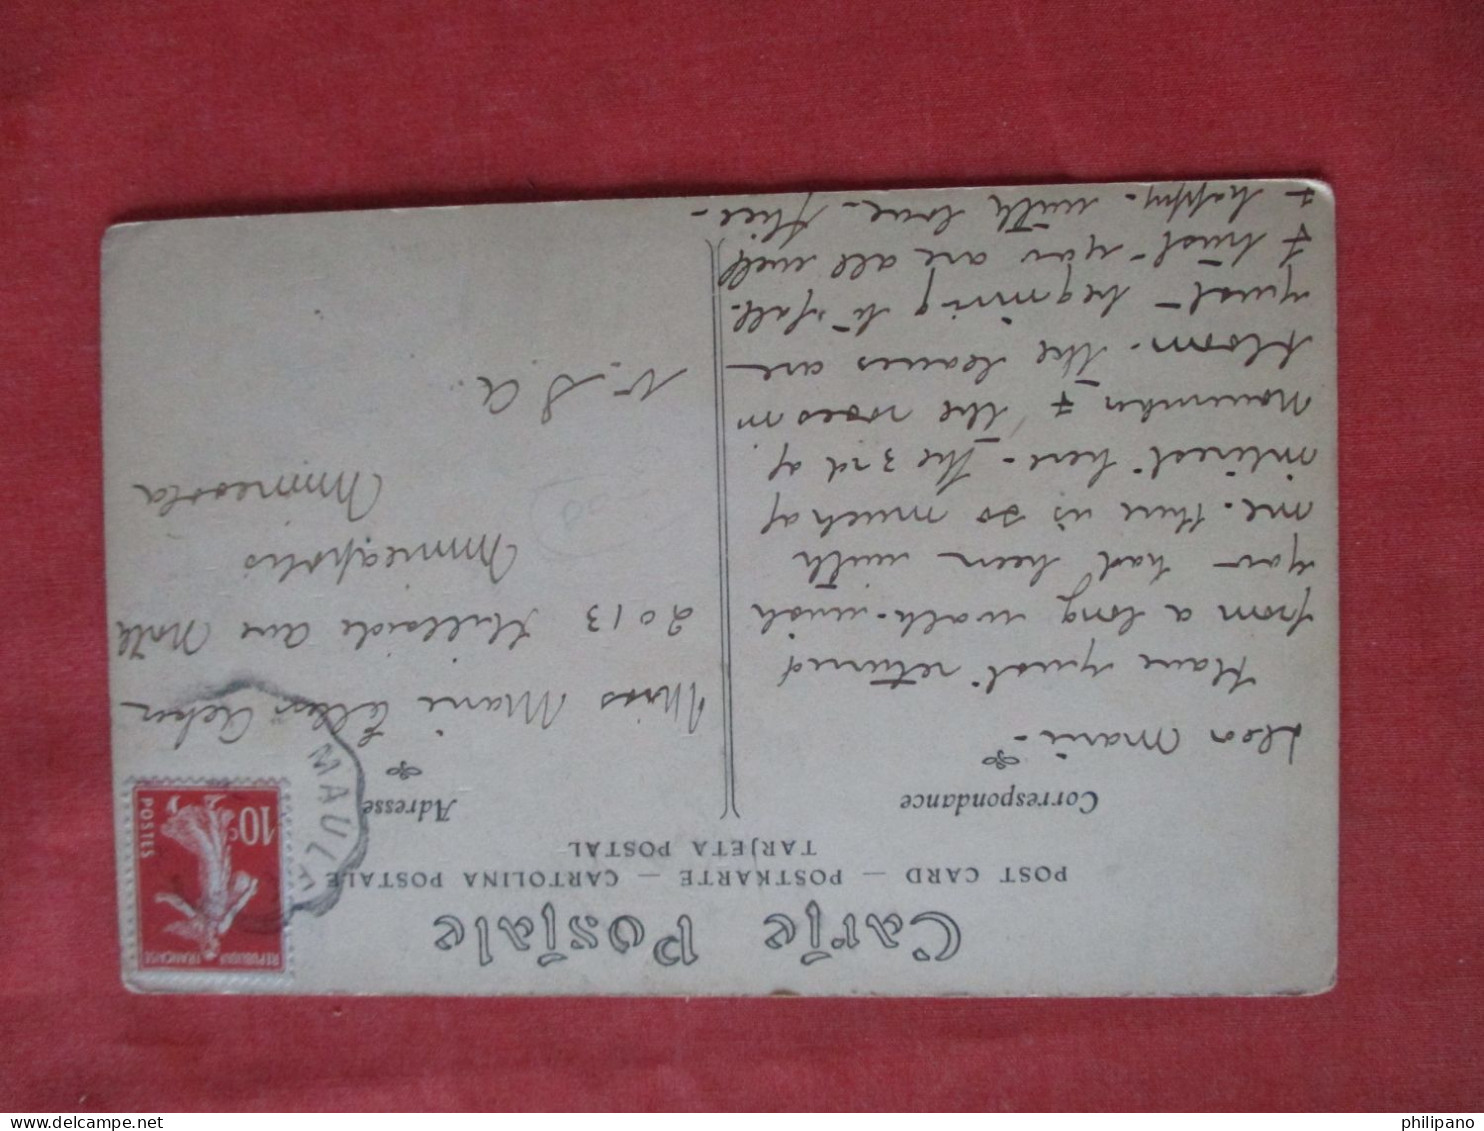 Carte Postale
POST CARD — POSTKARTE — CARTOLINA POSTALE
TARJETA POSTAL
Correspondance
Adresse
REPUBLIQUE FRANÇAISE
10c
POSTES
MAULE
Dear Marie -
Have just returned
from a long walk - wish
you had been with
me - there is so much of
interest here - the 3rd of
November & the roses in
bloom - the leaves are
just beginning to fall -
I trust you are all well
& happy - with love -
Miss Marie Ellen
2013 Hillside Ave North
Minneapolis
Minnesota
U.S.A.
philipano